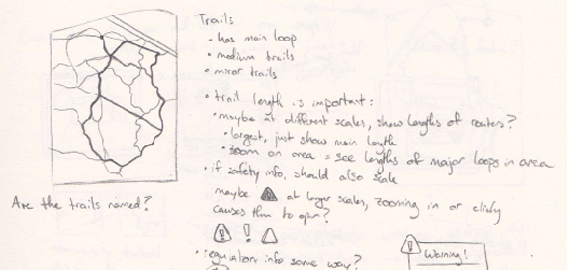 Trails
- has main loop
• medium trails
• minor trails
• trail length is important:
• maybe at different scales, show lengths of routes?
• largest, just show main length
• zoom on area = see lengths of major loops in area
• if safety info, should also scale
maybe at larger scales, zooming in or clicking
causes them to open?
! ! 
• regulatory info some way?
Are the trails named?
! Warning!